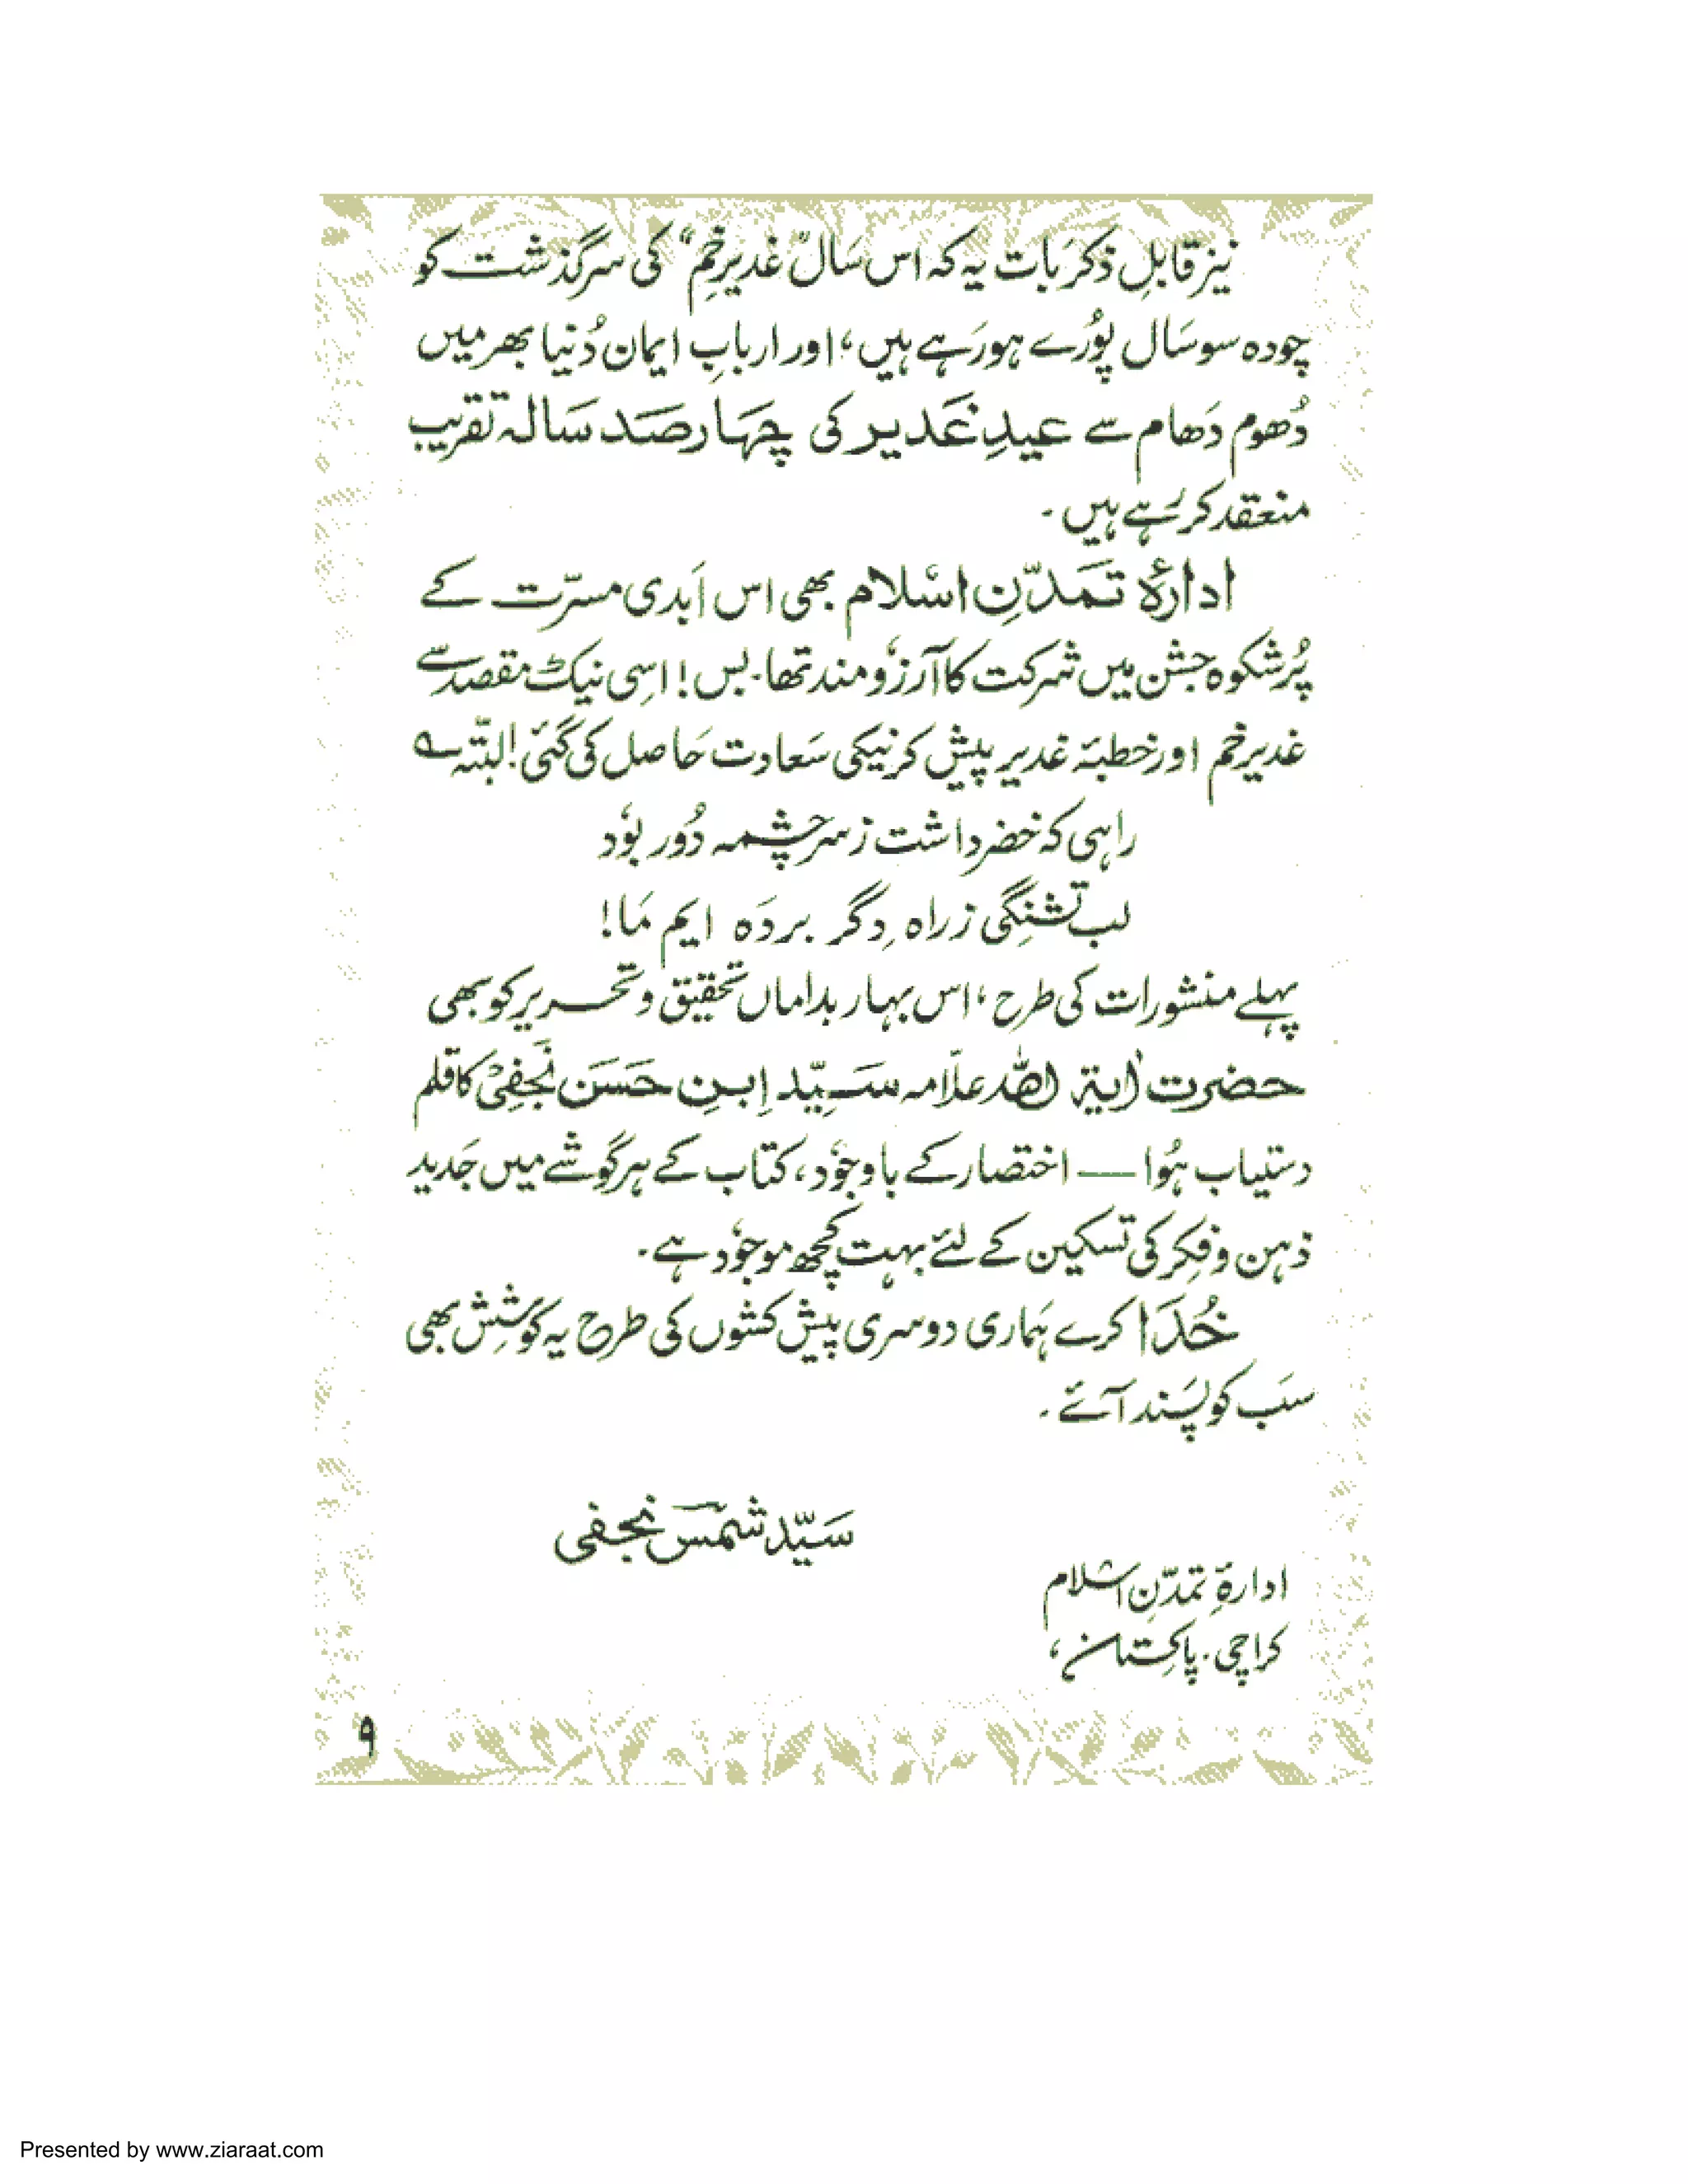 نیز قابلِ ذکر بات یہ کہ اس سَال "غدیرِ خُم" کی سرگذشت کو
چودہ سو سَال پوُرے ہورَہے ہیں، اور اربابِ ایمان دُنیا بھر میں
دُھوم دَھام سے عیدِ غَدیر کی چہَار صَد سَالہ تقریب
منعقد کر رَہے ہیں ۔
ادارۂ تمَدّنِ اسْلام بھی اس اَبدی مسرّت کے
پُرشکوہ جشن میں شرکت کا آرزوٗمند تھا۔ بس! اسِی نیک مقصد سے
غدیرِ خم اور خطبۂ غدیر پیش کرنیکی سَعادت حَاصل کی گئی! البتّہ ے
راہی کہ خضر داشت ز سرچشمہ دُور بوٗد
لب تشنِگی ز راہ ِدگر بردَہ ایم مَا!
پہلے منشورات کی طرح، اس بہار بداماں تحقیق و تحریر کو بھی
حضرت اٰیۃ اللہ علاّمہ سَیِّد اِبنِ حَسَن نَجَفِیْ کا قلم
دستیاب ہُوا — اختصار کے باوجوٗد، کتاب کے ہر گوشے میں جَدید
ذہن و فِکر کی تسکین کے لئے بہت کچھ موجوٗد ہے ۔
خُدَا کرے ہمَاری دوسری پیش کشوں کی طرح یہ کوشِش بھی
سَب کو پسَند آئے ۔
سَیّد شمسؔ نجفی
ادارۂِ تمدّنِ اسْلام
کراچی ۔ پاکِستان،
۹
Presented by www.ziaraat.com